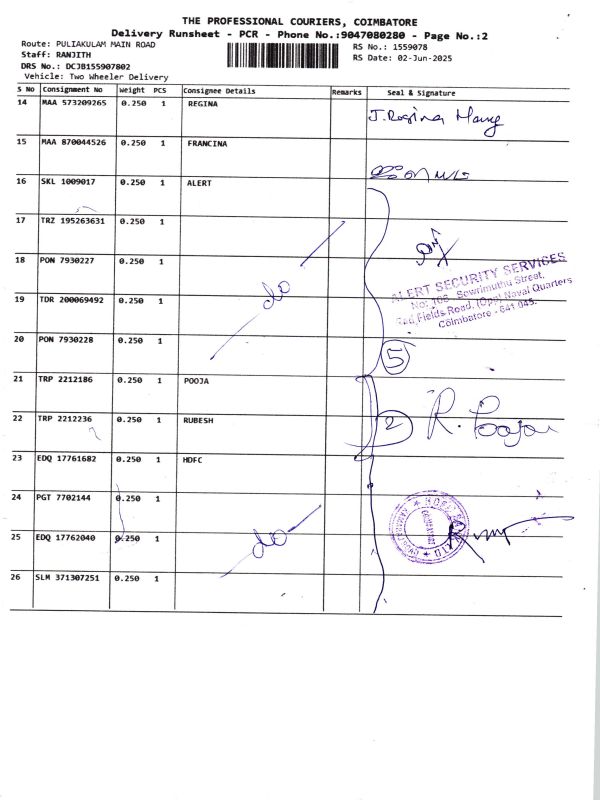 THE PROFESSIONAL COURIERS, COIMBATORE
Delivery Runsheet - PCR - Phone No.:9047080280 - Page No.:2
Route: PULIAKULAM MAIN ROAD
Staff: RANJITH
DRS No.: DCJB155907802
Vehicle: Two Wheeler Delivery
RS No.: 1559078
RS Date: 02-Jun-2025
S No Consignment No Weight PCS Consignee Details Remarks Seal & Signature
14 MAA 573209265 0.250 1 REGINA J. Regina Mary
15 MAA 870044526 0.250 1 FRANCINA
16 SKL 1009017 0.250 1 ALERT
17 TRZ 195263631 0.250 1
18 PON 7930227 0.250 1 do
ALERT SECURITY SERVICES
No: 106, Sowrimuthu Street,
Red Fields Road, (Opp) Naval Quarters
Coimbatore - 641 045.
19 TDR 200069492 0.250 1
20 PON 7930228 0.250 1 5
21 TRP 2212186 0.250 1 POOJA
22 TRP 2212236 0.250 1 RUBESH 2 R. Pooja
23 EDQ 17761682 0.250 1 HDFC
24 PGT 7702144 0.250 1
25 EDQ 17762040 0.250 1 do
26 SLM 371307251 0.250 1